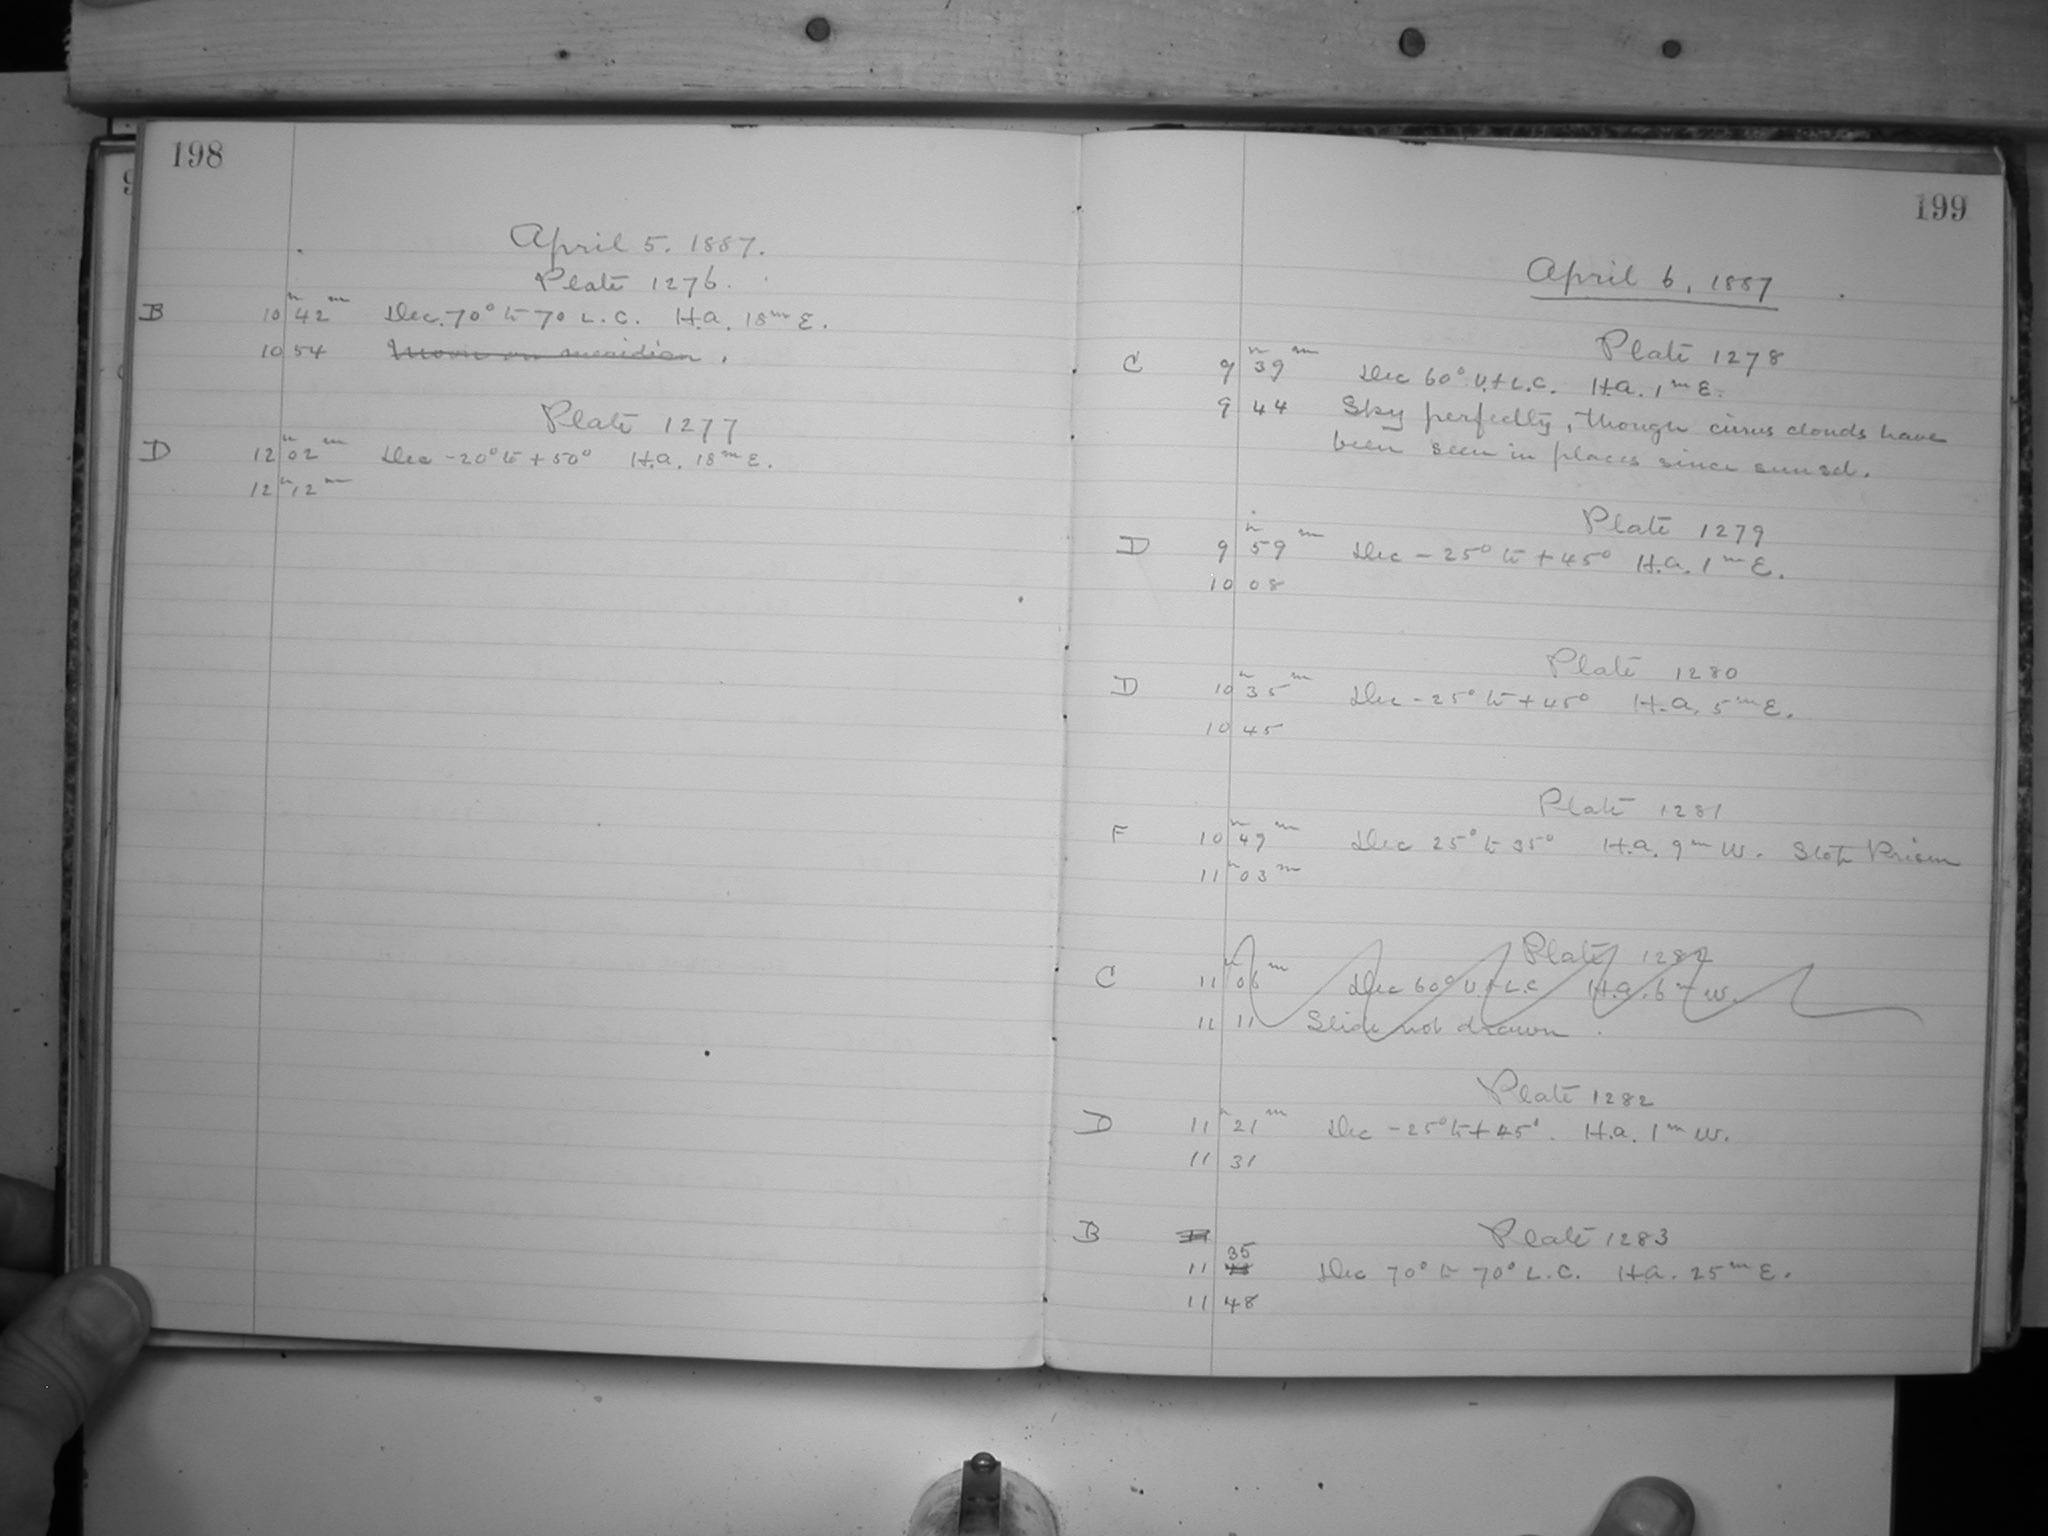 198
April 5. 1887.
Plate 1276.
B 10 42 Dec. 70° to 70 L.C. H.A. 18m E.
10 54 Moon on meridian.
Plate 1277
D 12h 02m Dec -20° to +50° H.A. 18m E.
12h 12m
199
April 6, 1887
Plate 1278
C 9h 39m Dec 60° U.+L.C. H.A. 1m E.
9 44 Sky perfectly, though cirrus clouds have
been seen in places since sunset.
Plate 1279
D 9h 59m Dec -25° to +45° H.A. 1m E.
10 08
Plate 1280
D 10h 35m Dec -25° to +45° H.A. 5m E.
10 45
Plate 1281
F 10h 49m Dec 25° to 35° H.A. 9m W. Stop Prism
11h 03m
Plate 1282
C 11h 06m Dec 60° U.+L.C. H.A. 6m W.
11 11 Slide not drawn.
Plate 1282
D 11h 21m Dec -25° to +45°. H.A. 1m W.
11 31
B Plate 1283
35
11 Dec 70° to 70° L.C. H.A. 25m E.
11 48